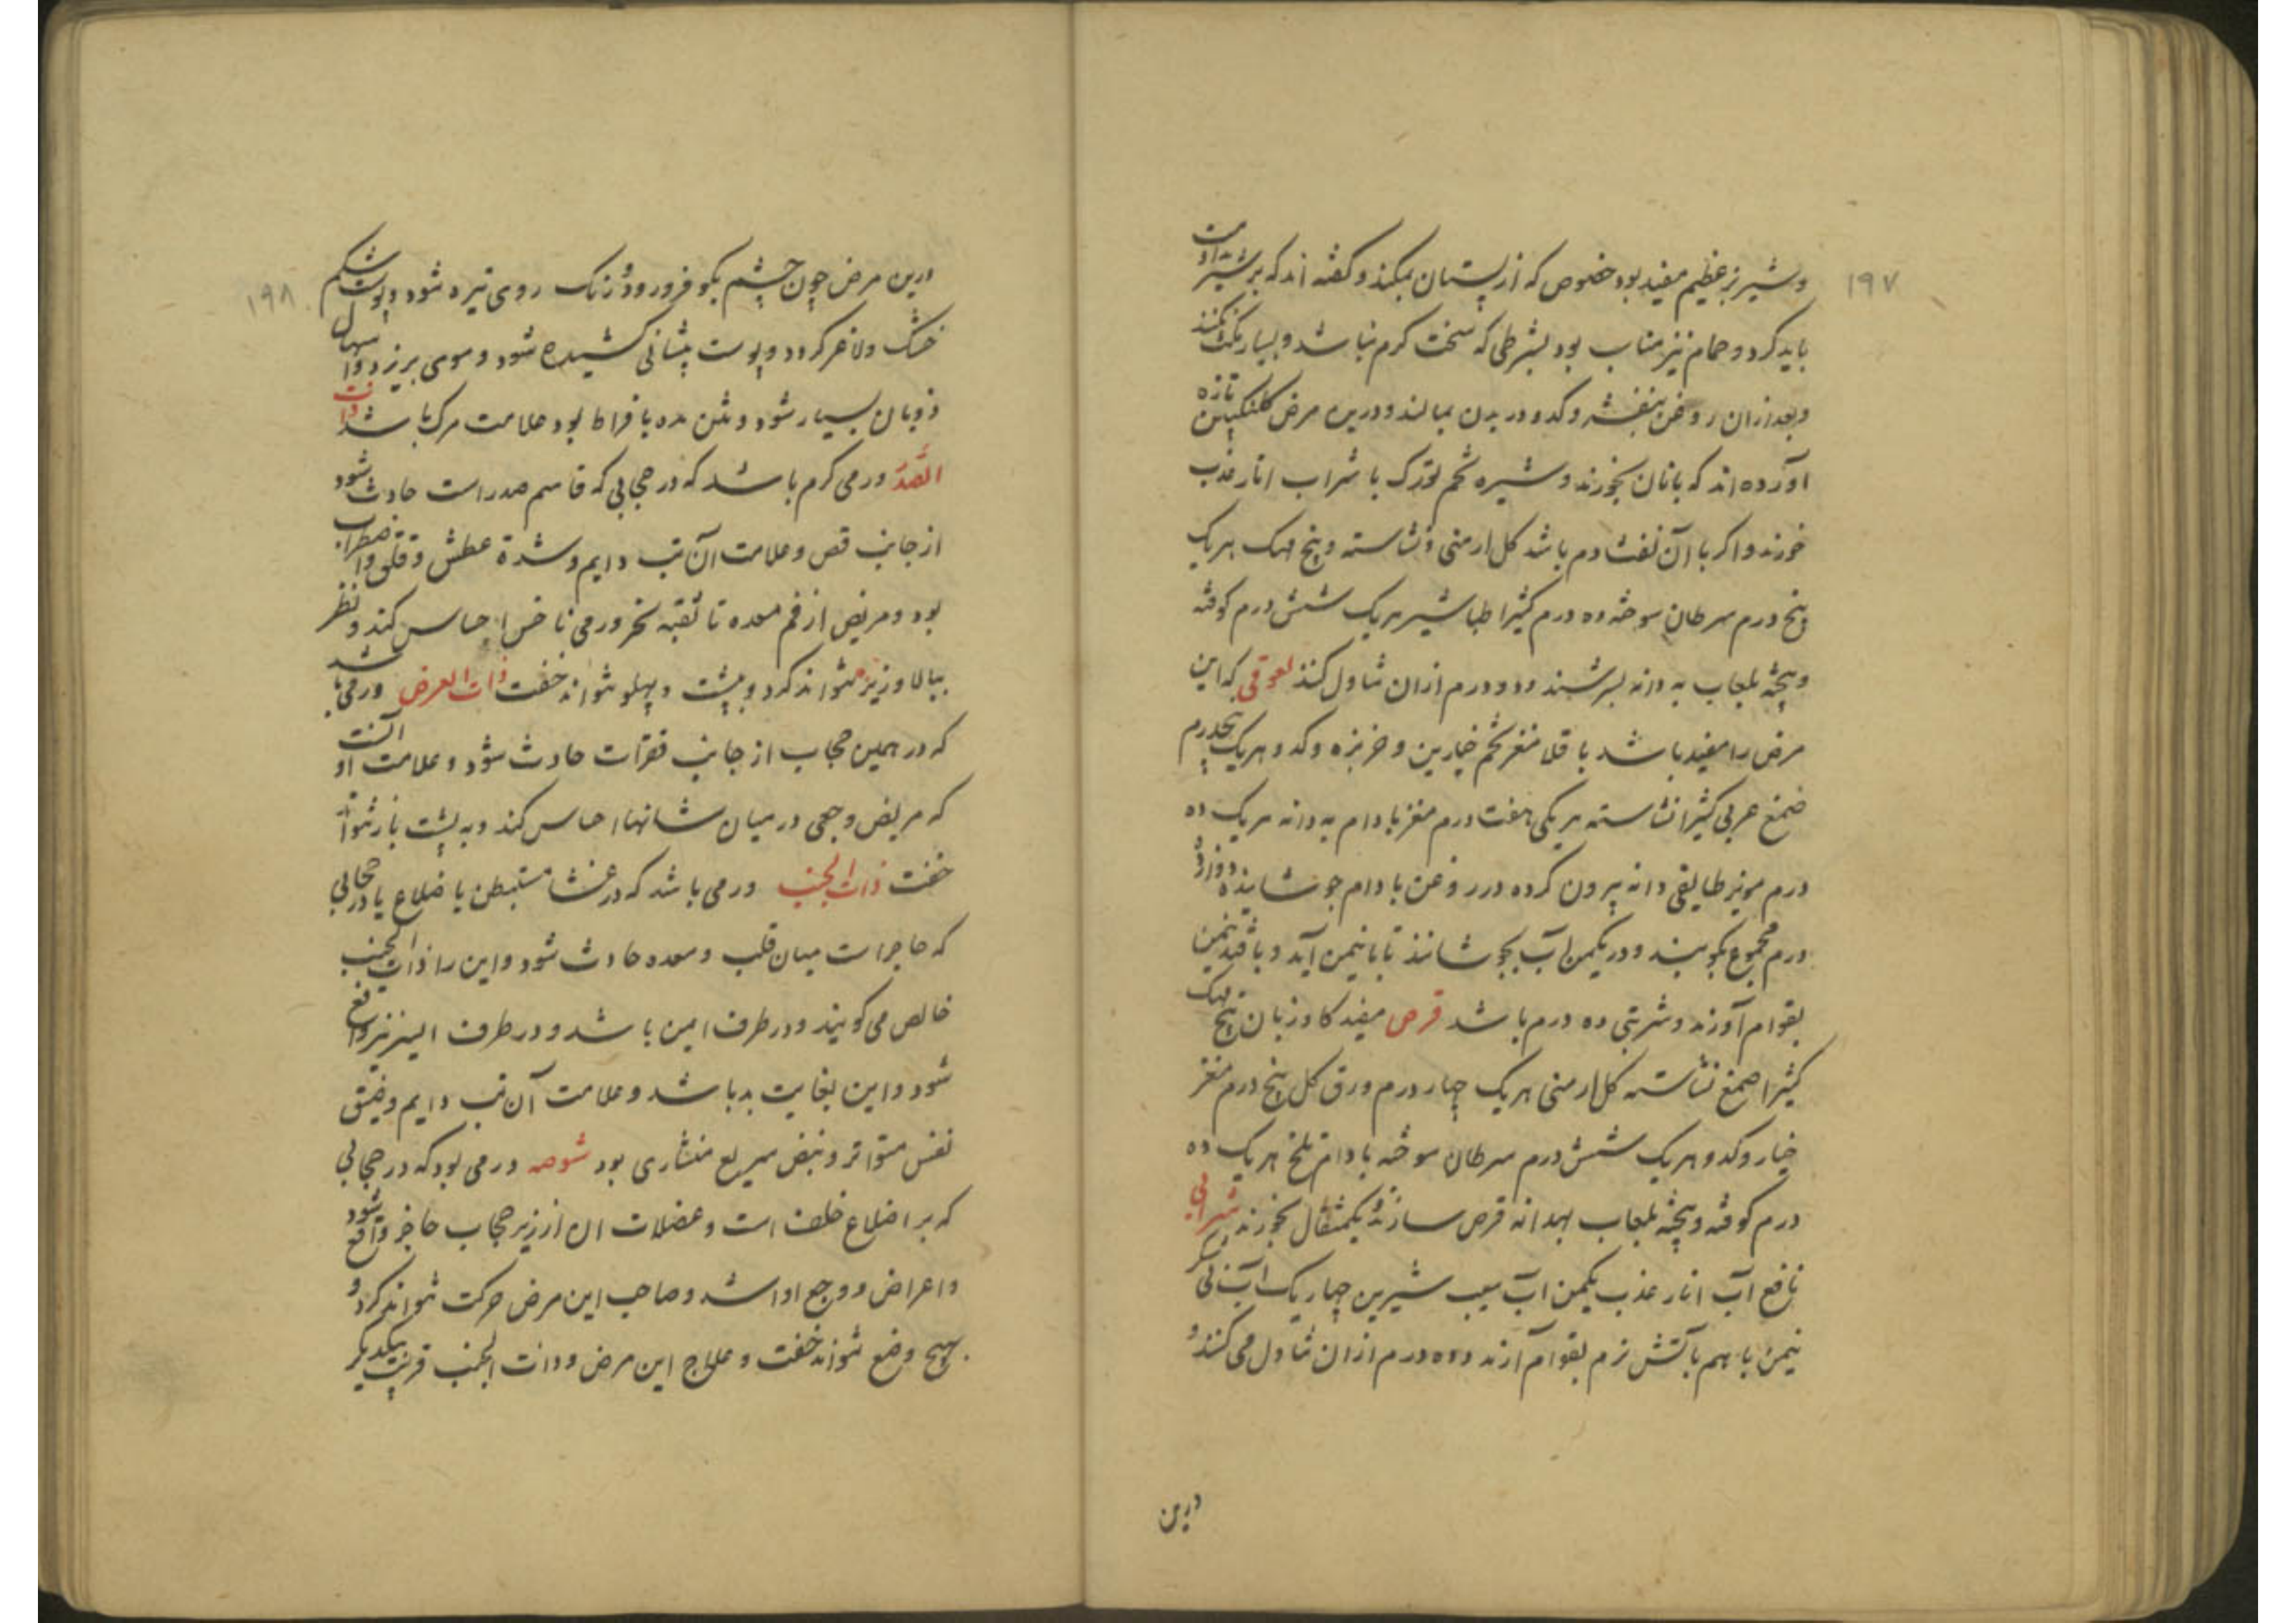 ۱۹۷
وشیر بز عظیم مفید بود خصوص که از پستان بمکند و کفته اند که بر شیر مداومت
باید کرد و حمام نیز مناسب بود بشرطی که سخت کرم نباشد و بسیار مکث نکنند
و بعد ازان روغن بنفشه و کدو در بدن بمالند و درین مرض کلنکبین تازه
آورده اند که با نان بخورند و شیره تخم تورک با شراب انار عذب
خورند و اکر با آن نفث دم باشد کل ارمنی و نشاسته و بنج مهک هریک
پنج درم سرطان سوخته ده درم کثیرا طباشیر هریک شش درم کوفته
و بیخته بلعاب به دانه بسرشند و دو درم ازان تناول کنند لعوقی که این
مرض را مفید باشد باقلا مغز تخم خیارین و خربزه و کدو هریک پنجدرم
صمغ عربی کثیرا نشاسته هریکی هفت درم مغز بادام به دانه هریک ده
درم مویز طایفی دانه بیرون کرده در روغن بادام جوشانیده دوازده
درم مجموع بکوبند و در یکمن آب بجوشانند تا با نیمن آید و با قند نیمن
بقوام آورند و شربتی ده درم باشد قرص مفید کاوزبان بنج مهک
کثیرا صمغ نشاسته کل ارمنی هریک چهار درم ورق کل پنج درم مغز
خیار و کدو هریک شش درم سرطان سوخته بادام تلخ هریک ده
درم کوفته و بیخته بلعاب بهدانه قرص سازند و یکمثقال بخورند شرابی
نافع آب انار عذب یکمن آب سیب شیرین چهاریک آب نی شکر
نیمن با هم بآتش نرم بقوام آرند و ده درم ازان تناول می کنند و
درین
۱۹۸
درین مرض چون چشم بکو فرو رود و رنک روی تیره شود و پوست شکم
خشک و لاغر کردد و پوست پیشانی کشیده شود و موی بریزد و اسهال
ذوبان بسیار شود و نتن مده بافراط بود علامت مرک باشد ذات
الصدر ورمی کرم باشد که در حجابی که قاسم صدر است حادث شود
از جانب قص و علامت آن تب دایم و شدة عطش و قلق و اضطراب
بود و مریض از فم معده تا ثقبه نحر ورمی ناخس احساس کند و نظر
ببالا و زیر نتواند کرد و به پشت و پهلو نتواند خفت ذات العرض ورمی باشد
که در همین حجاب از جانب فقرات حادث شود و علامت او آنست
که مریض وجعی در میان شانها احساس کند و به پشت باز نتواند
خفت ذات الجنب ورمی باشد که در غشا مستبطن یا ضلاع یا در حجابی
که حاجز است میان قلب و معده حادث شود و این را ذات الجنب
خالص می کویند و در طرف ایمن باشد و در طرف ایسر نیز واقع
شود و این بغایت بد باشد و علامت آن تب دایم و ضیق
نفس متواتر و نبض سریع منشاری بود شوصه ورمی بود که در حجابی
که بر اضلاع خلف است و عضلات ان از زیر حجاب حاجز واقع شود
و اعراض و وجع او اشد و صاحب این مرض حرکت نتواند کرد و
بهیچ وضع نتواند خفت و علاج این مرض و ذات الجنب قریب بیکدیکر